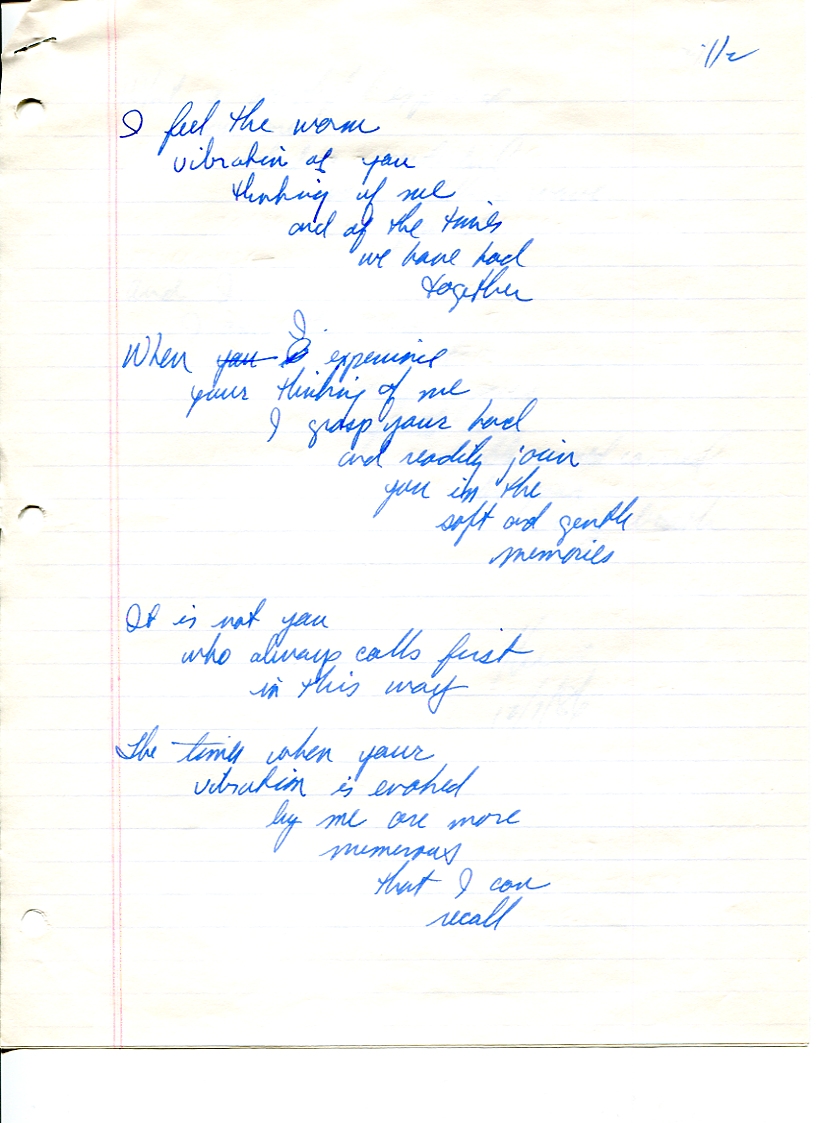 I feel the warm
vibration of you
thinking of me
and of the times
we have had
together
When you I experience
your thinking of me
I grasp your hand
and readily join
you in the
soft and gentle
memories
It is not you
who always calls first
in this way
The times when your
vibration is evoked
by me are more
numerous
that I can
recall